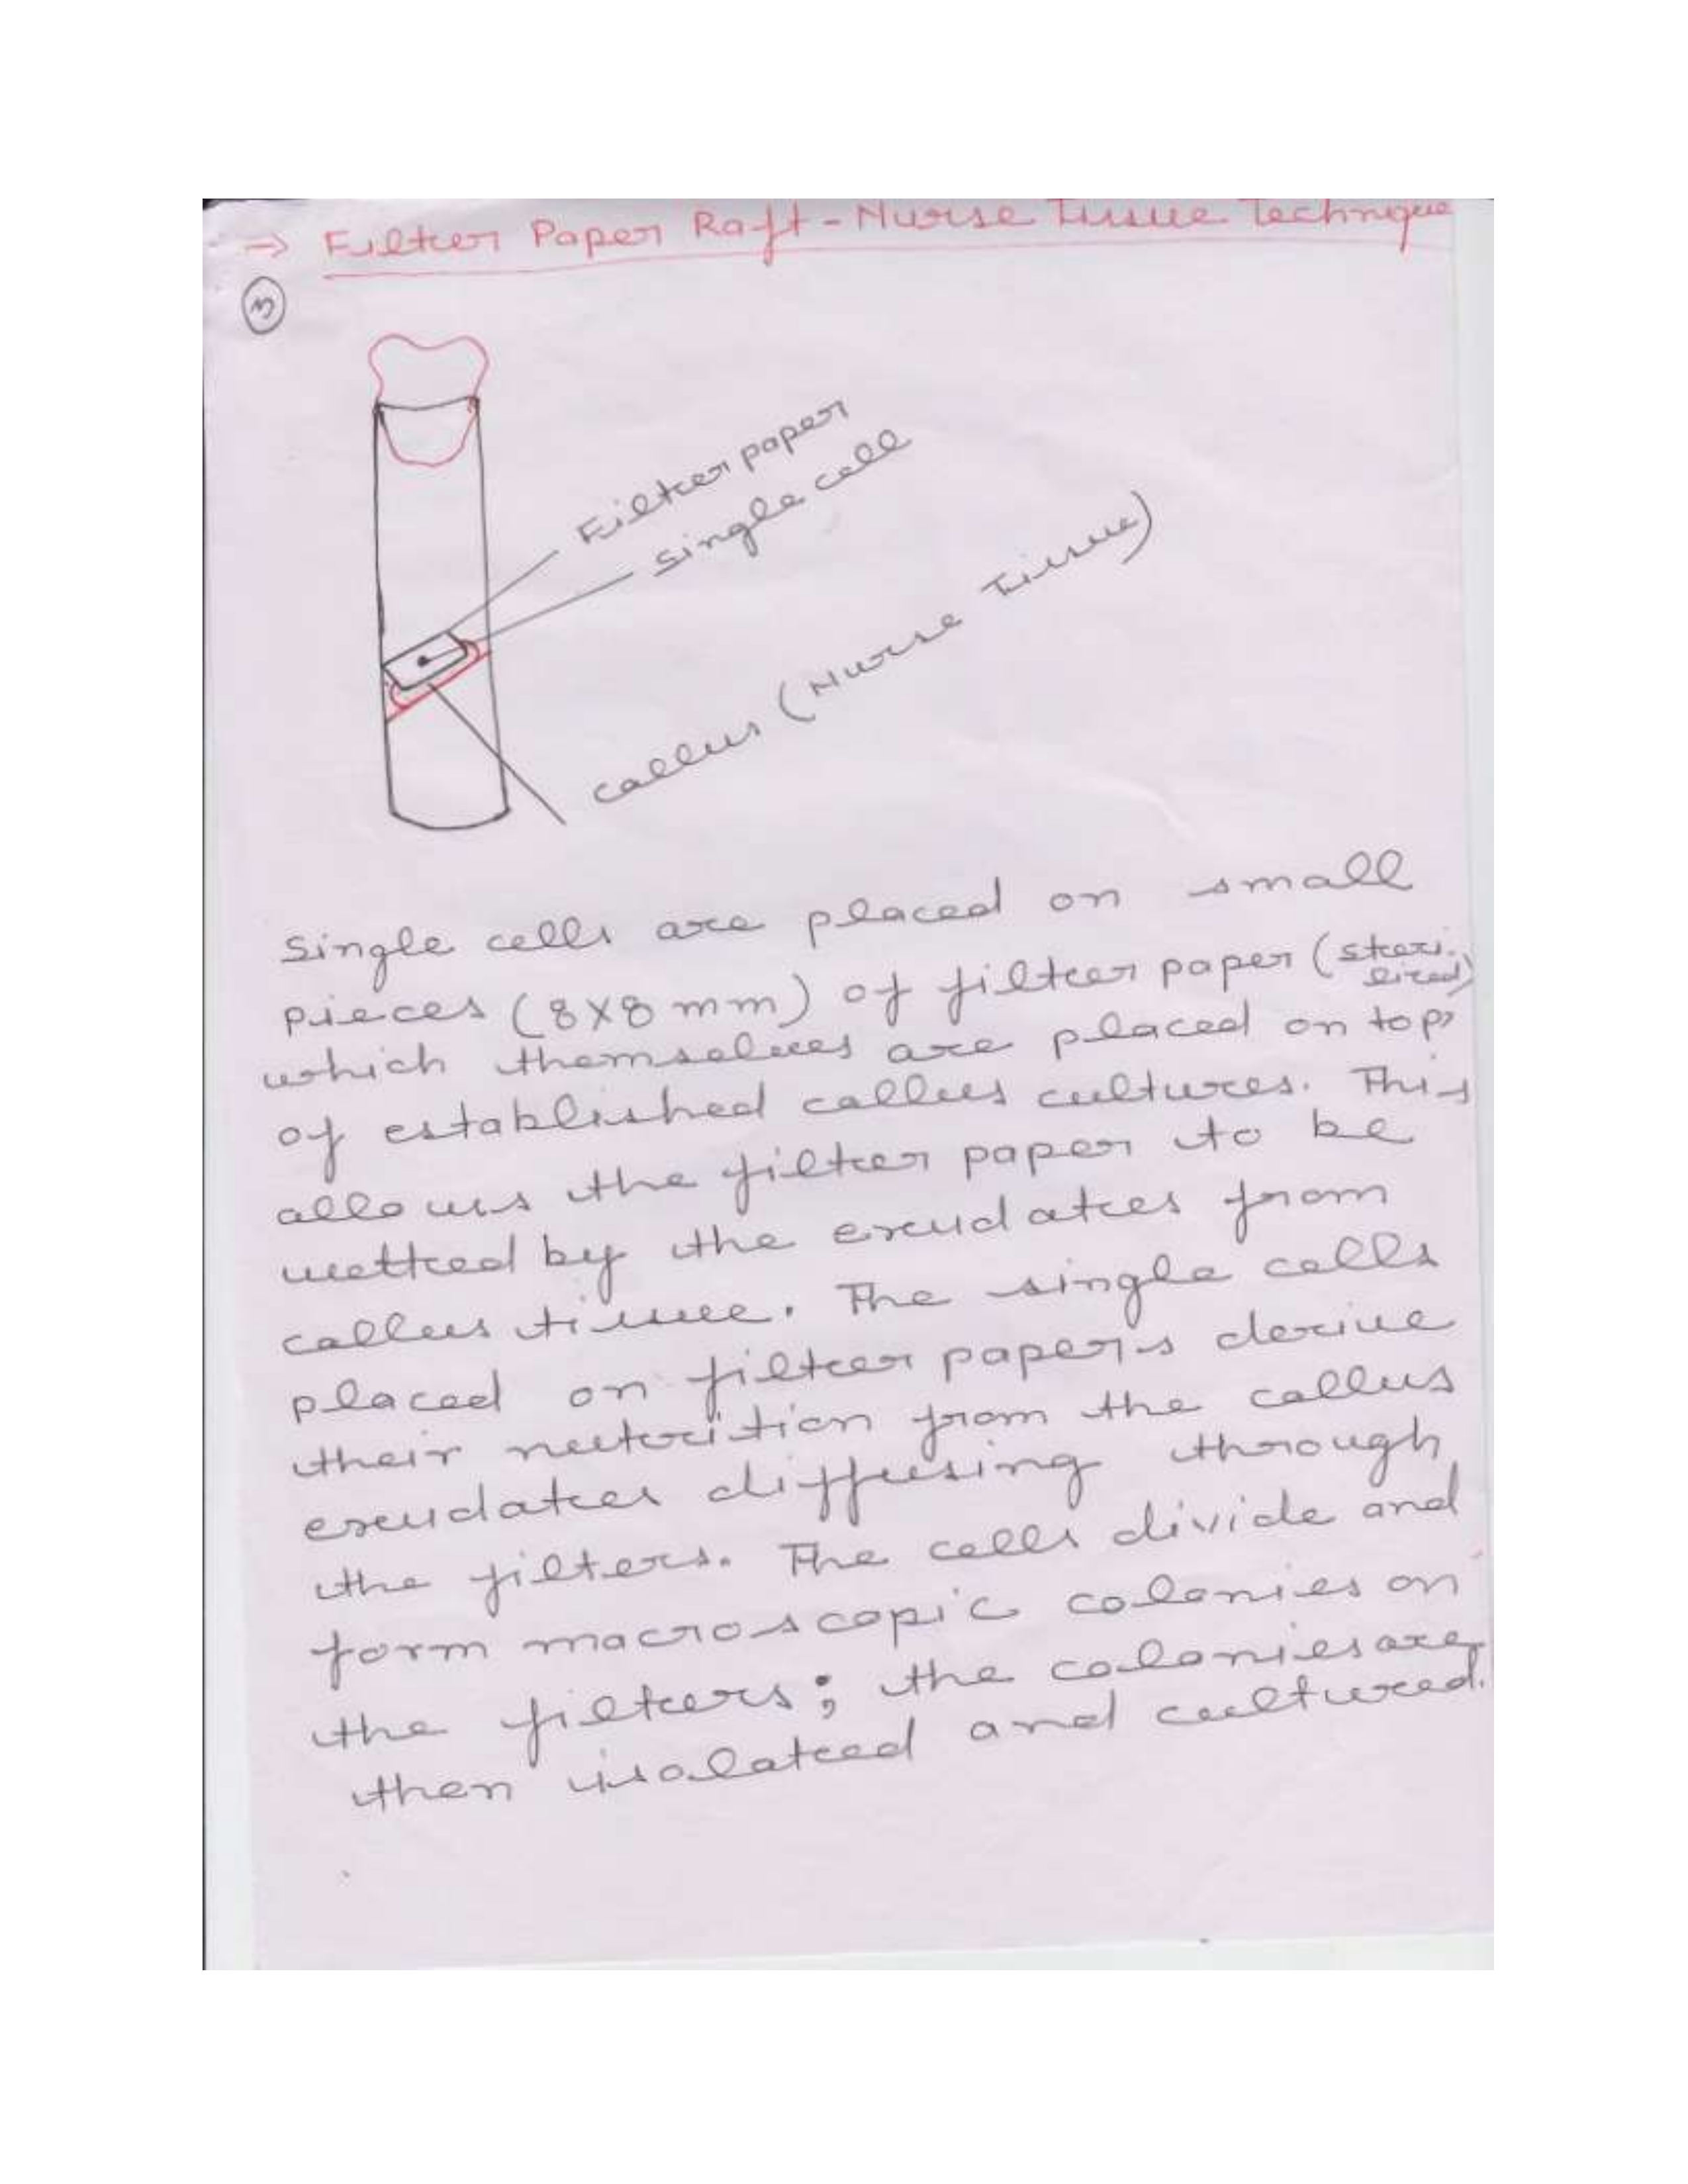 → Filter Paper Raft - Nurse Tissue Technique
3
Filter paper
Single cell
Callus (Nurse Tissue)
Single cells are placed on small
pieces (8X8 mm) of filter paper (steri-
lized)
which themselves are placed on top
of established callus cultures. This
allows the filter paper to be
wetted by the exudates from
callus tissue. The single cells
placed on filter papers derive
their nutrition from the callus
exudates diffusing through
the filters. The cells divide and
form macroscopic colonies on
the filters; the colonies are
then isolated and cultured.